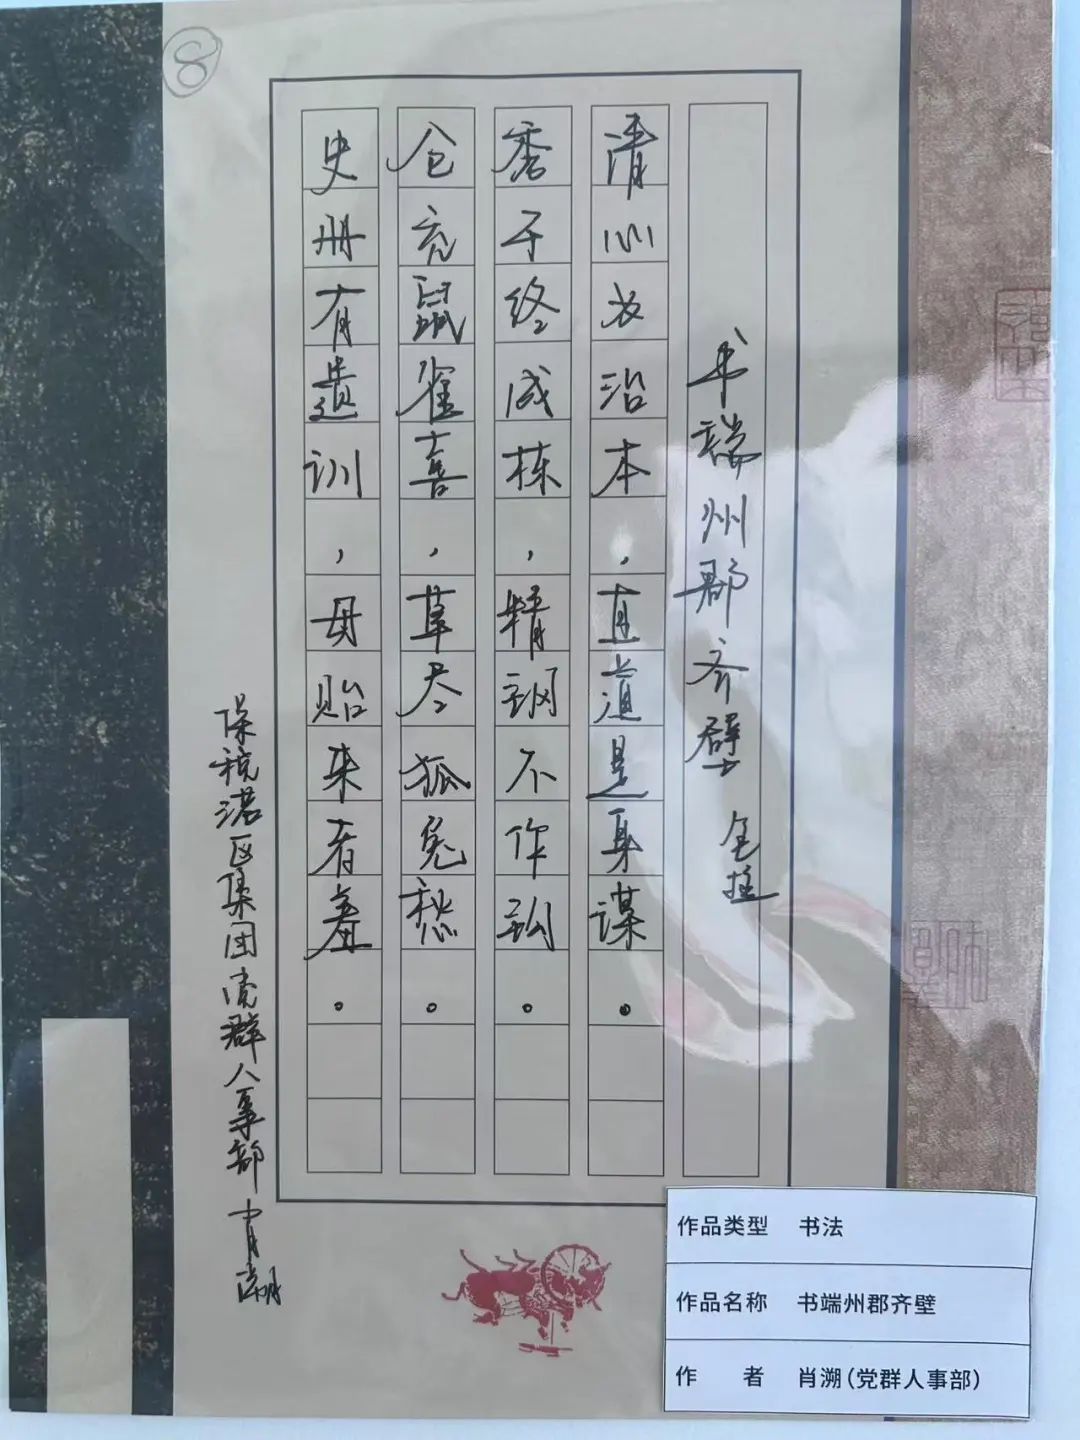 ⑧
书端州郡齐壁 包拯
清心为治本，直道是身谋。
秀干终成栋，精钢不作钩。
仓充鼠雀喜，草尽狐兔愁。
史册有遗训，毋贻来者羞。
保税港区集团党群人事部 肖溯
作品类型 书法
作品名称 书端州郡齐壁
作 者 肖溯（党群人事部）